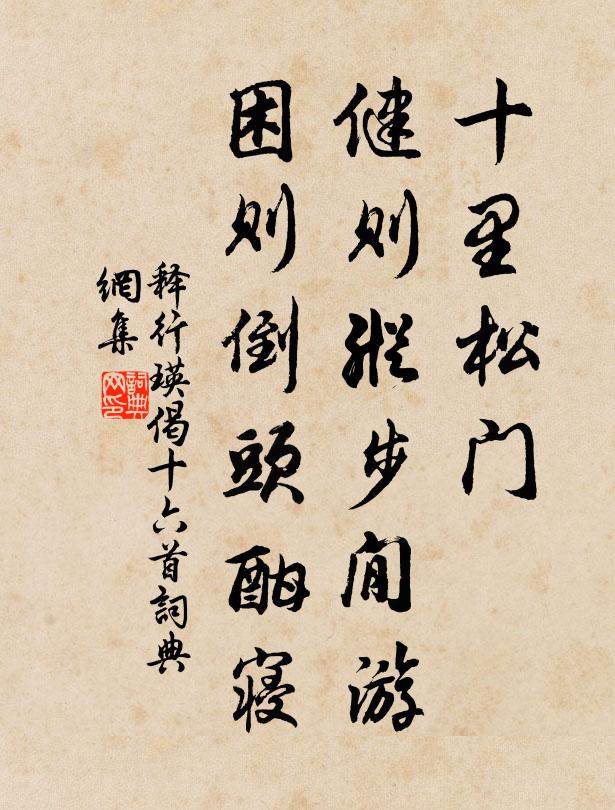 十里松门
健则纵步閒游
困则倒頭酣寝
释行瑛偈十六首詞典
網集
詞典
网印